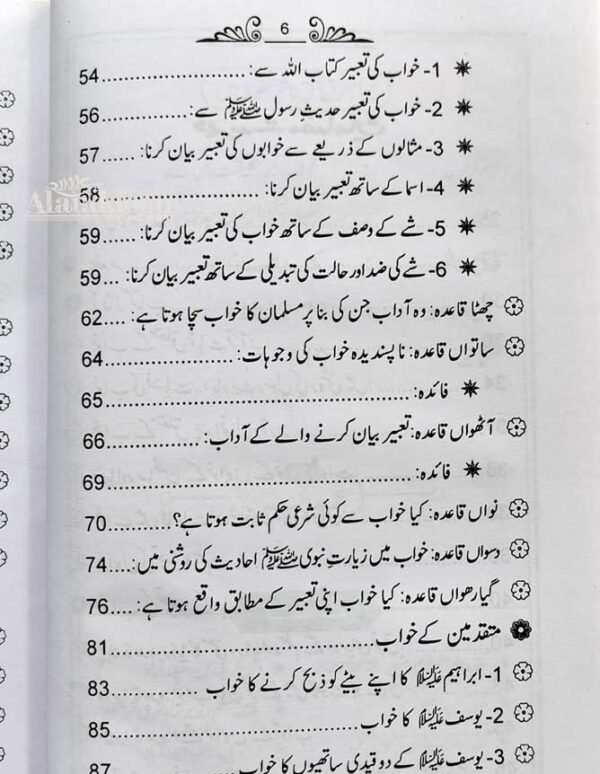 6
1- خواب کی تعبیر کتاب اللہ سے: ........................ 54
2- خواب کی تعبیر حدیثِ رسول ﷺ سے: ........................ 56
3- مثالوں کے ذریعے سے خوابوں کی تعبیر بیان کرنا: ...... 57
4- اسما کے ساتھ تعبیر بیان کرنا: ........................ 58
5- شے کے وصف کے ساتھ خواب کی تعبیر بیان کرنا: ...... 59
6- شے کی ضد اور حالت کی تبدیلی کے ساتھ تعبیر بیان کرنا: ... 59
چھٹا قاعدہ: وہ آداب جن کی بنا پر مسلمان کا خواب سچا ہوتا ہے: .... 62
ساتواں قاعدہ: ناپسندیدہ خواب کی وجوہات: .................. 64
فائدہ: ........................ 65
آٹھواں قاعدہ: تعبیر بیان کرنے والے کے آداب: .............. 66
فائدہ: ........................ 69
نواں قاعدہ: کیا خواب سے کوئی شرعی حکم ثابت ہوتا ہے؟ ........... 70
دسواں قاعدہ: خواب میں زیارتِ نبوی ﷺ احادیث کی روشنی میں: .... 74
گیارھواں قاعدہ: کیا خواب اپنی تعبیر کے مطابق واقع ہوتا ہے: .... 76
متقدمین کے خواب ........................ 81
1- ابراہیم علیہ السلام کا اپنے بیٹے کو ذبح کرنے کا خواب ............ 83
2- یوسف علیہ السلام کا خواب ........................ 85
3- یوسف علیہ السلام کے دو قیدی ساتھیوں کا خواب ............ 87